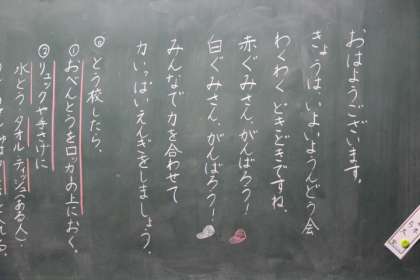 おはようございます。
きょうは、いよいようんどう会
わくわくどきどきですね。
赤ぐみさん、がんばろう!
白ぐみさん、がんばろう!
みんなで力を合わせて
力いっぱいえんぎをしましょう。
◎とう校したら、
①おべんとうをロッカの上におく。
②リュックや手さげに
水とう、タオル、ティッシュ(ある人)、